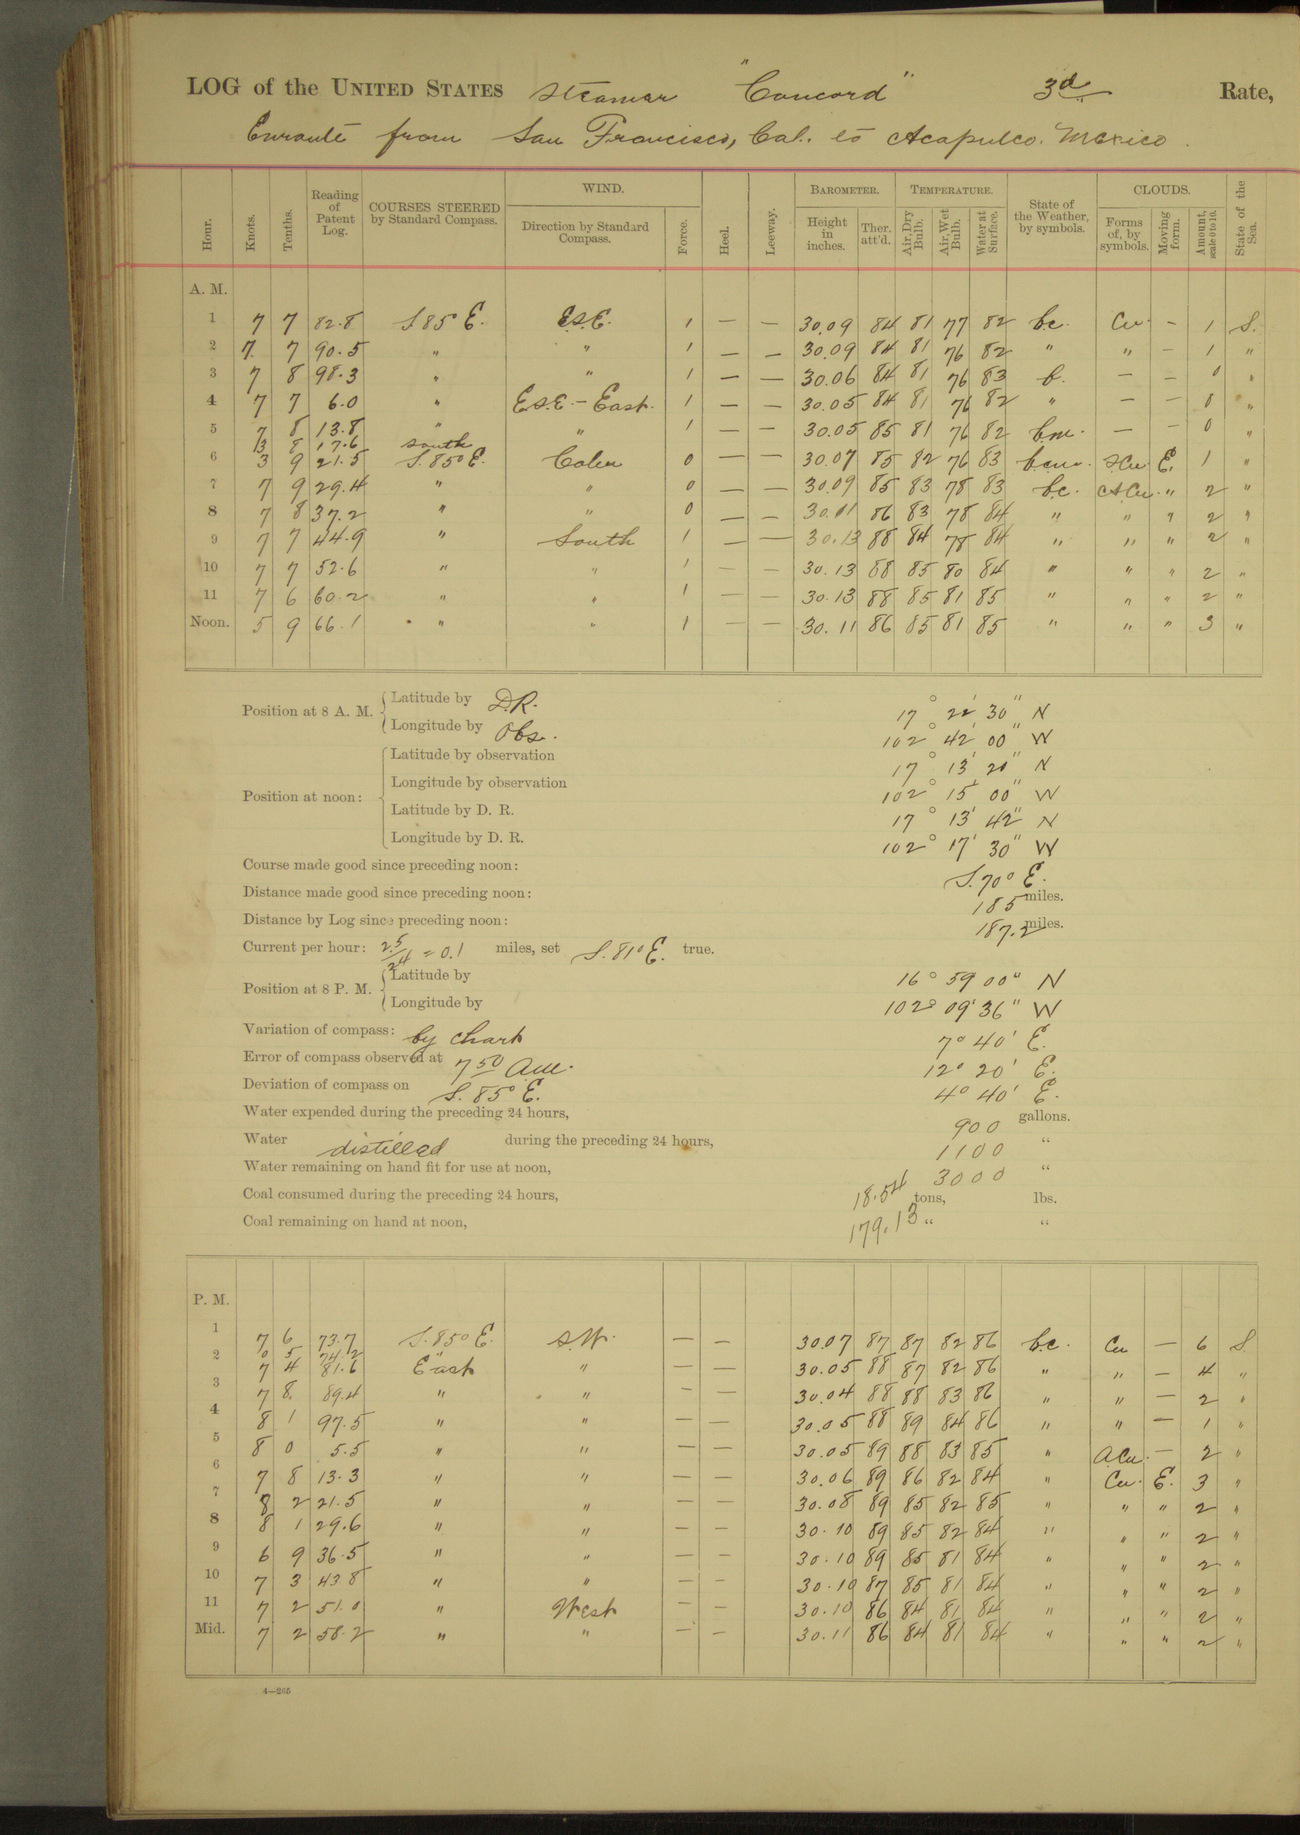 LOG of the UNITED STATES Steamer "Concord" 3d Rate,
Enroute from San Francisco, Cal. to Acapulco. Mexico.
Hour. Knots. Tenths. Reading of Patent Log. COURSES STEERED by Standard Compass. WIND. Direction by Standard Compass. Force. Heel. Leeway. BAROMETER. Height in inches. Ther. att'd. TEMPERATURE. Air, Dry Bulb. Air, Wet Bulb. Water at Surface. State of the Weather, by symbols. CLOUDS. Forms of, by symbols. Moving form. Amount, scale 0 to 10. State of the Sea.
A. M.
1 7 7 82.8 S 85° E. E.S.E. 1 — — 30.09 84 81 77 82 bc. Cu. - 1 S.
2 7 7 90.5 " " 1 — — 30.09 84 81 76 82 " " — 1 "
3 7 8 98.3 " " 1 — — 30.06 84 81 76 83 b. — — 0 "
4 7 7 6.0 " E.S.E. - East. 1 — — 30.05 84 81 76 82 " — — 0 "
5 7 8 13.8 " " 1 — — 30.05 85 81 76 82 b.m. — — 0 "
3 8 17.6 South
6 3 9 21.5 S. 85° E. Calm 0 — — 30.07 85 82 76 83 b.c.m. S.Cu. E. 1 "
7 7 9 29.4 " " 0 — — 30.09 85 83 78 83 b.c. A.Cu. " 2 "
8 7 8 37.2 " " 0 — — 30.11 86 83 78 84 " " " 2 "
9 7 7 44.9 " South 1 — — 30.13 88 84 78 84 " " " 2 "
10 7 7 52.6 " " 1 — — 30.13 88 85 80 84 " " " 2 "
11 7 6 60.2 " " 1 — — 30.13 88 85 81 85 " " " 2 "
Noon. 5 9 66.1 " " 1 — — 30.11 86 85 81 85 " " " 3 "
Position at 8 A. M. Latitude by D.R. 17° 22' 30" N
Longitude by Obs. 102° 42' 00" W
Position at noon: Latitude by observation 17° 13' 20" N
Longitude by observation 102° 15' 00" W
Latitude by D. R. 17° 13' 42" N
Longitude by D. R. 102° 17' 30" W
Course made good since preceding noon: S. 70° E.
Distance made good since preceding noon: 185 miles.
Distance by Log since preceding noon: 187.2 miles.
Current per hour: 2.5/24 = 0.1 miles, set S. 81° E. true.
Position at 8 P. M. Latitude by 16° 59 00" N
Longitude by 102° 09' 36" W
Variation of compass: by chart 7° 40' E.
Error of compass observed at 7 50 A.M. 12° 20' E.
Deviation of compass on S. 85° E. 4° 40' E.
Water expended during the preceding 24 hours, 900 gallons.
Water distilled during the preceding 24 hours, 1100 "
Water remaining on hand fit for use at noon, 3000 "
Coal consumed during the preceding 24 hours, 18.54 tons, lbs.
Coal remaining on hand at noon, 179.13 " "
P. M.
1 7 6 73.7 S. 85° E. S.W. — — 30.07 87 87 82 86 b.c. Cu — 6 S.
0 5 74.2 "
2 7 4 81.6 East " — — 30.05 88 87 82 86 " " — 4 "
3 7 8 89.4 " " — — 30.04 88 88 83 86 " " — 2 "
4 8 1 97.5 " " — — 30.05 88 89 84 86 " " — 1 "
5 8 0 5.5 " " — — 30.05 89 88 83 85 " A.Cu. — 2 "
6 7 8 13.3 " " — — 30.06 89 86 82 84 " Cu. E. 3 "
7 8 2 21.5 " " — — 30.08 89 85 82 85 " " " 2 "
8 8 1 29.6 " " — — 30.10 89 85 82 84 " " " 2 "
9 6 9 36.5 " " — — 30.10 89 85 81 84 " " " 2 "
10 7 3 43.8 " " — — 30.10 87 85 81 84 " " " 2 "
11 7 2 51.0 " West — — 30.10 86 84 81 84 " " " 2 "
Mid. 7 2 58.2 " " — — 30.11 86 84 81 84 " " " 2 "
4—265